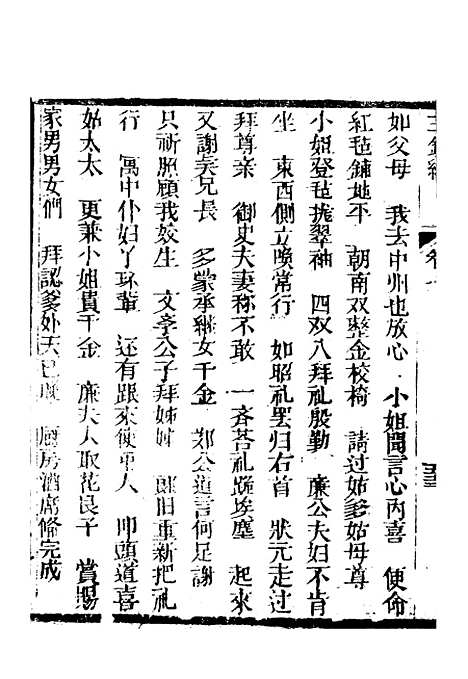 如父母　我去中州也放心　小姐聞言心內喜　便命
紅毡鋪地平　朝南双整金校椅　請过姑爹姑母尊
小姐登毡攏翠袖　四双八拜礼殷勤　廉公夫妇不肯
坐　東西側立喚常行　如昭礼罢归右首　狀元走过
拜尊亲　御史夫妻称不敢　一斉荅礼跪埃塵　起來
又謝吴兄長　多蒙承継女千金　郑公道言何足謝
只祈照顧我姣生　文亭公子拜姊姊　郎旧重新把礼
行　寓中仆妇丫环輩　还有跟來使用人　叩頭道喜
姑太太　更兼小姐貴千金　廉夫人取花艮子　賞賜
家男男女們　拜認爹外天已　厨房酒席俻完成